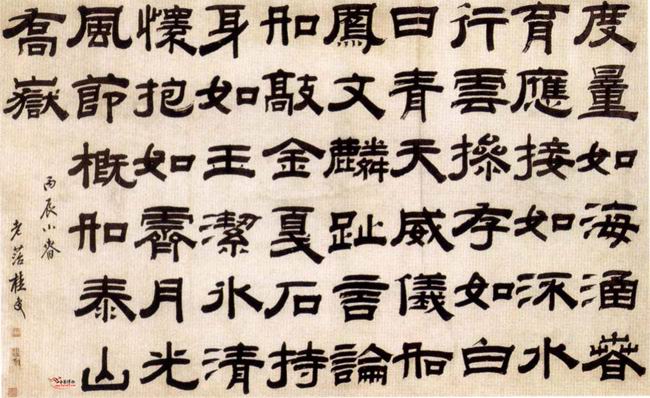 度量如海涵春
育應接如流水
行雲操存如白
日青天威儀如
鳳文麟趾言論
如敲金戛石持
身如玉潔冰清
懷抱如霽月光
風節概如泰山
喬嶽
丙辰小春
老菭桂馥